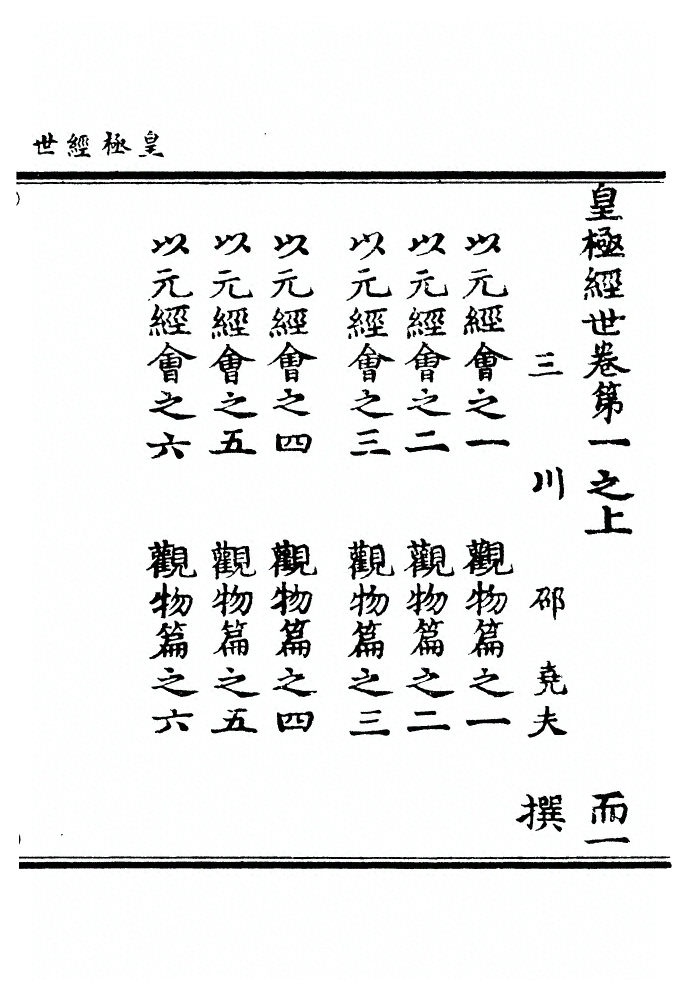 皇極經世
皇極經世卷第一之上 而一
三川 邵堯夫 撰
以元經會之一 觀物篇之一
以元經會之二 觀物篇之二
以元經會之三 觀物篇之三
以元經會之四 觀物篇之四
以元經會之五 觀物篇之五
以元經會之六 觀物篇之六